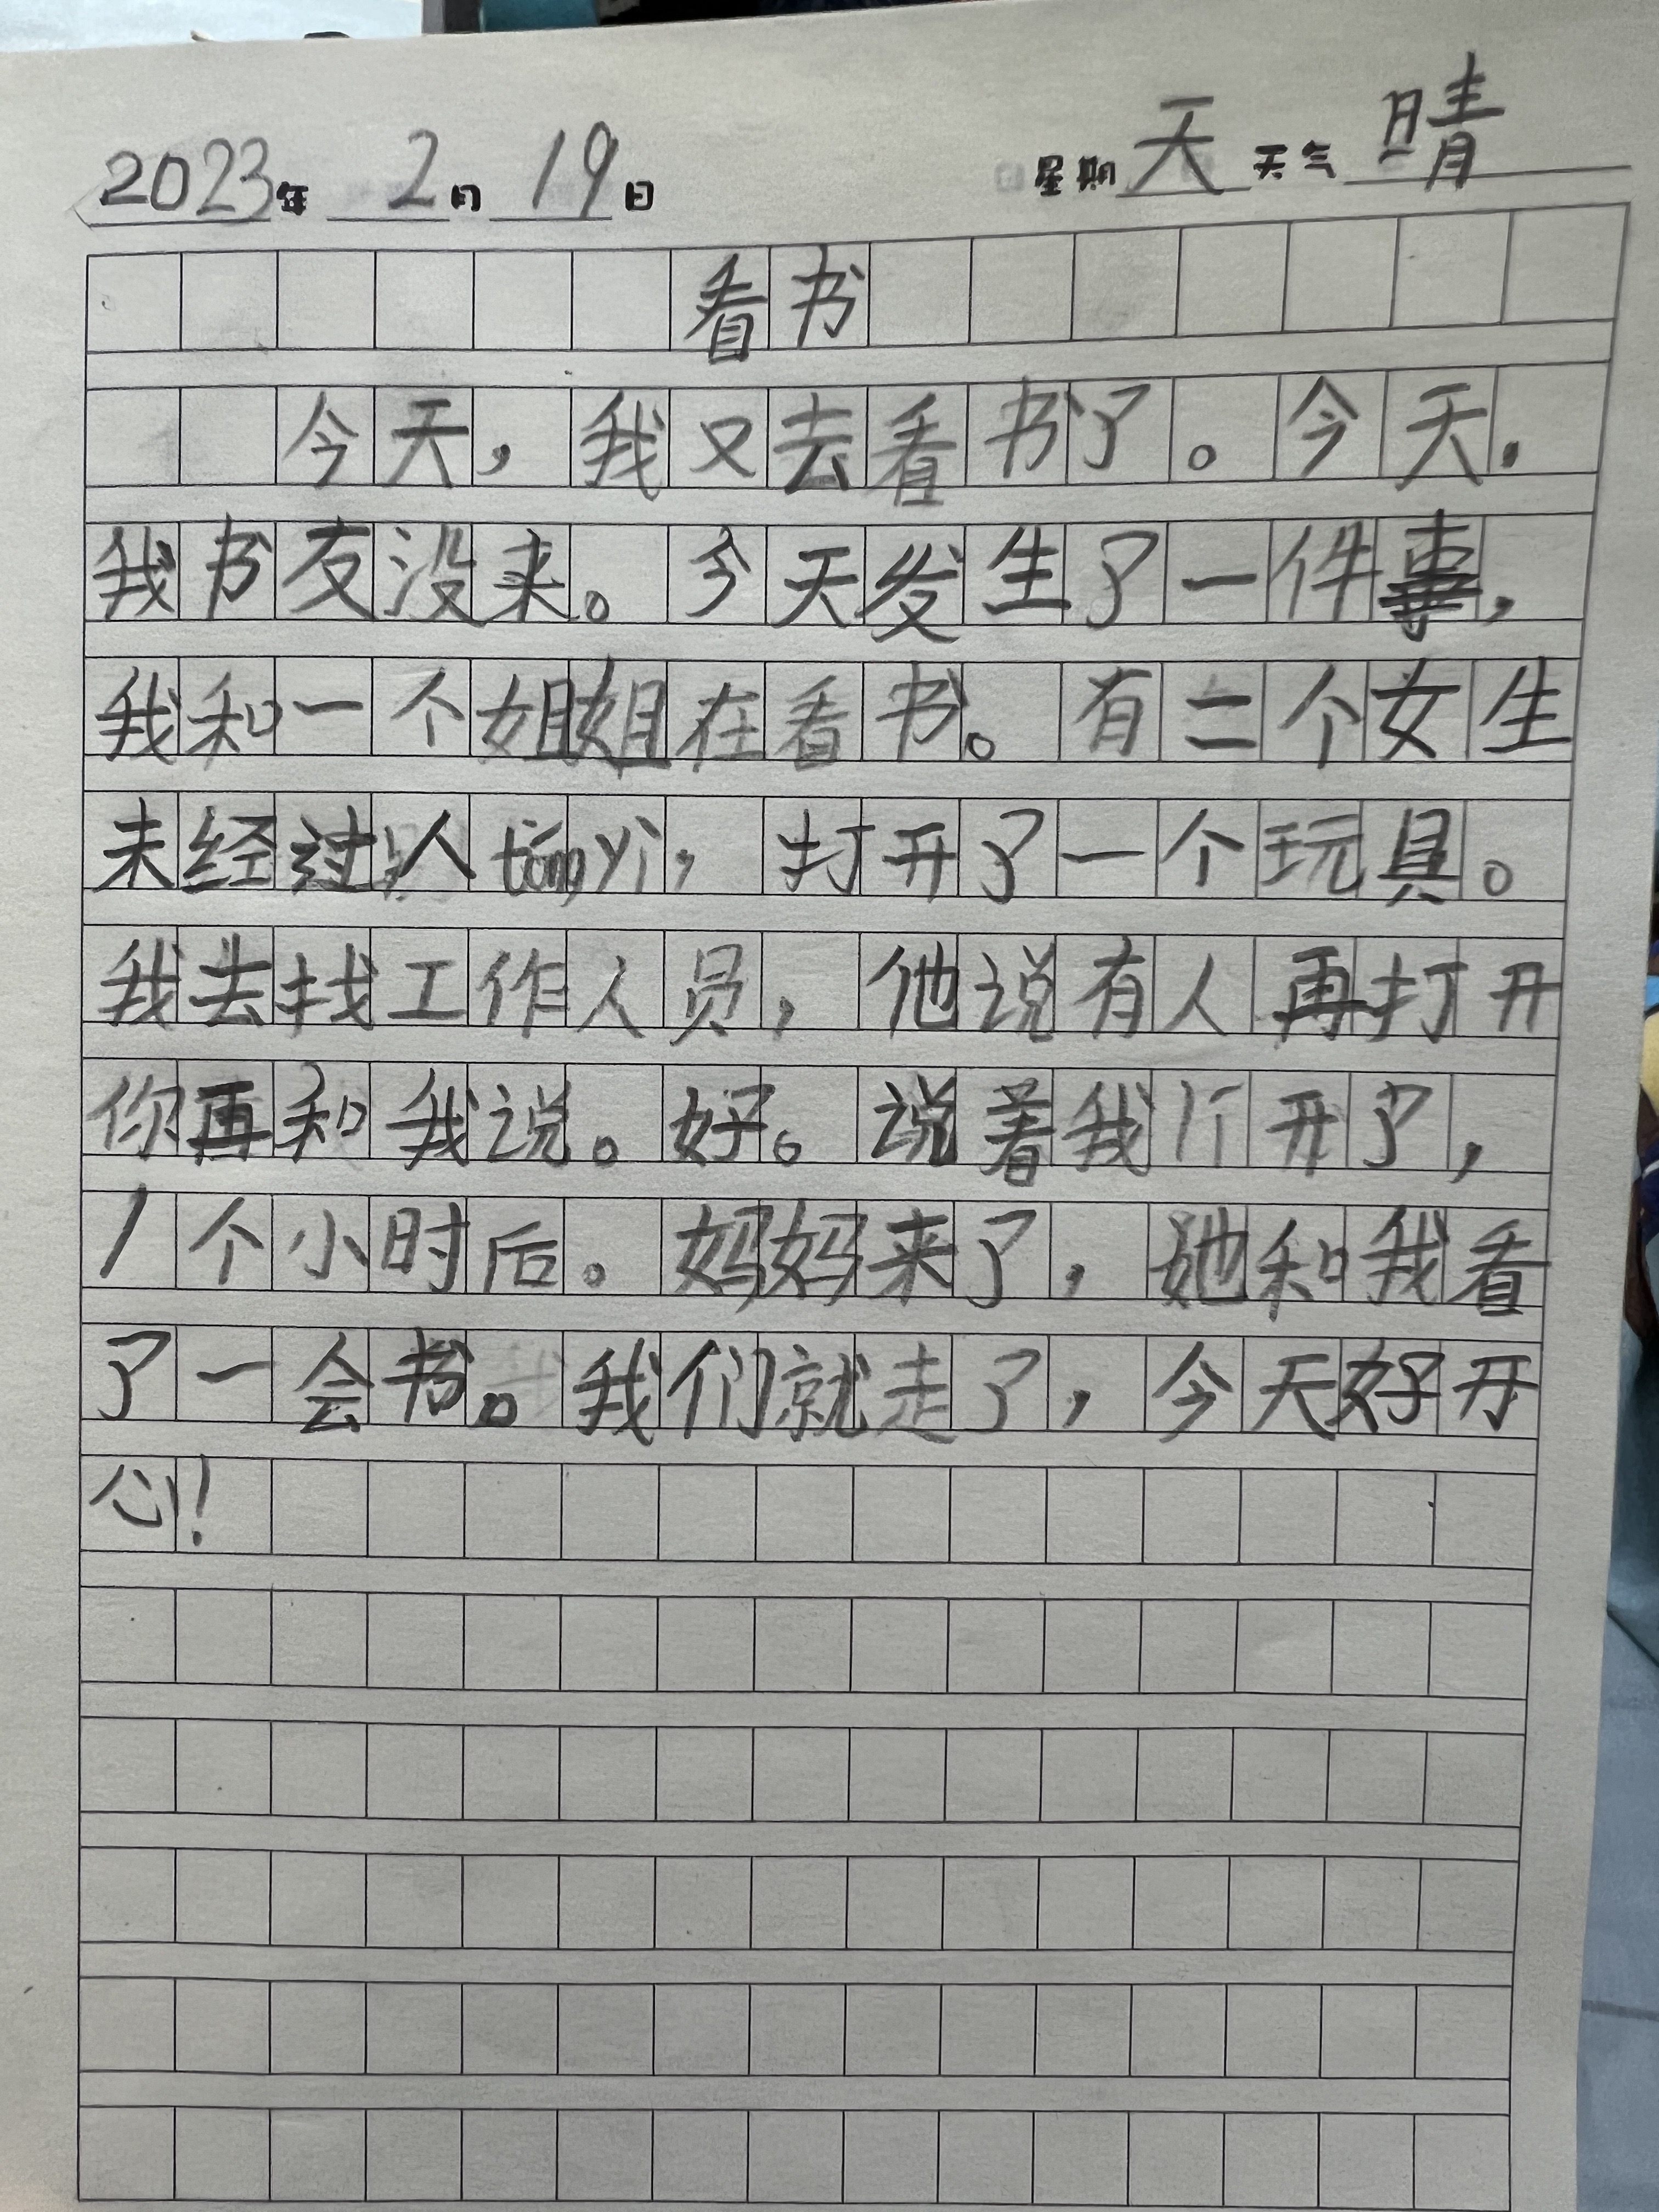 2023年 2月 19日 星期天 天气 晴
看书
今天，我又去看书了。今天.
我书友没来。今天发生了一件事，
我和一个姐姐在看书。有二个女生
未经过人tóng yì，打开了一个玩具。
我去找工作人员，他说有人再打开
你再和我说。好。说着我开了，
1个小时后。妈妈来了，她和我看
了一会书。我们就走了，今天好开
心！